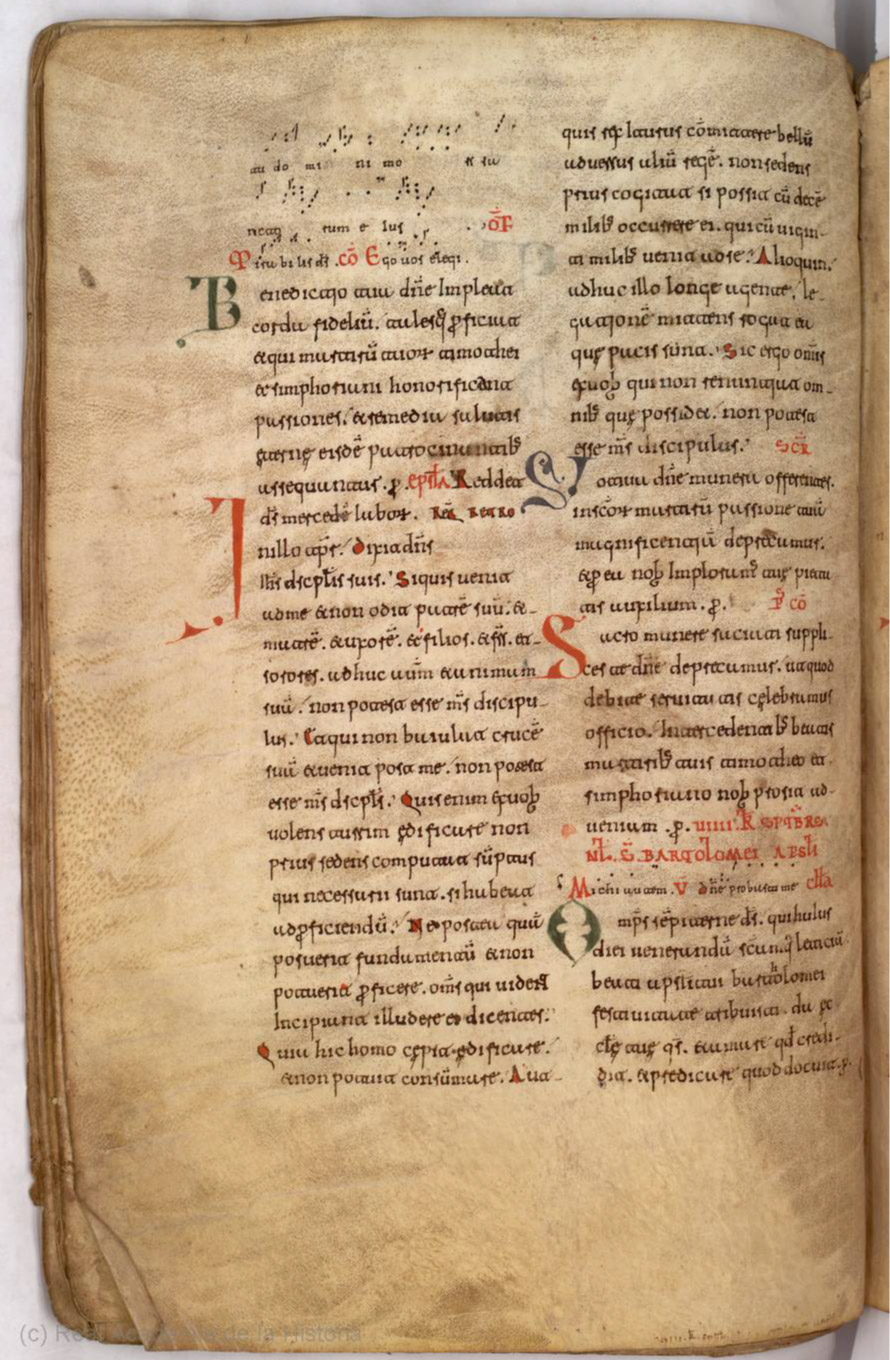 au do mi ni mo et su
um e ius . of̄
Mirabilis ds̄ . cō Ego uos elegi .
Benedictio tua dn̄e Impleat
corda fideliū . tales q̨ ꝓficiat
& qui martirū tuorꝫ timothei
& simphoriani honorificent
passiones . & remedia salutis
&ernę eisdē patrocinantibꝫ
assequantur . ꝑ . epstl̄a Reddet
ds̄ mercedē labor . Req̄ retro
In illo tp̄r . Dixit dn̄s
ih̄s discpl̄is suis . Si quis uenit
ad me & non odit patrē suū . &
matrē . & uxorē . & filios . & frs̄ . et
sorores . adhuc autm̄ & animam
suā . non potest esse ms̄ discipu-
lus . Et qui non baiulat crucē
suā & uenit post me . non potest
esse ms̄ discpl̄s . Quis enim ex uob̄
uolens turrim ędificare non
prius sedens computat sūptus
qui necessarii sunt . si habeat
ad ꝓficiendū . Ne postea quā
posuerit fundamentū & non
potuerit ꝓficere . oms̄ qui uident
Incipiunt illudere ei dicentes .
Quia hic homo cepit ędificare .
& non potuit consūmare . Aut
quis rex iturus cōmittere bellū
aduersus aliū regē . non sedens
prius cogitat si possit cū decē
milibꝫ occurrere ei . qui cū uigin-
ti milibꝫ uenit ad se . Alioquin .
adhuc illo longe agente . le-
gationē mittens rogat ea
quę pacis sunt . Sic ergo omis
ex uob̄ qui non renuntiat om-
nibꝫ quę possidet . non potest
esse ms̄ discipulus . Scr̄
Votiua dn̄e munera offerentes .
in scōr martirū passione tuā
magnificentiā deprecamur .
& ꝑ ea nob̄ Implorām̄ tuę pietatis
auxilium . ꝑ . P̄ cō
Sacro munere saciati suppli-
ces te dn̄e deprecamur . ut quod
debitę seruitutis cęlebramus
officio . Intercedentibꝫ beatis
martiribꝫ tuis timotheo et
simphoriano nob̄ prosit ad
ueniam . ꝑ . VIIII . K̄ SEPTBRES
NT̄ . S̄ . BARTOLOMEI APSLI
Michi autem . V̄ Dn̄e probasti me cll̄a
Omps̄ sēpiterne ds̄ . qui huius
diei uenerandā scām q̨ leticiā
beati apstl̄i tui bartholomei
festiuitate tribuisti . da ęc-
clę tuę qs̄ . & amare qd̄ credi-
dit . & predicare quod docuit . ꝑ .
(c) Real Academia de la Historia